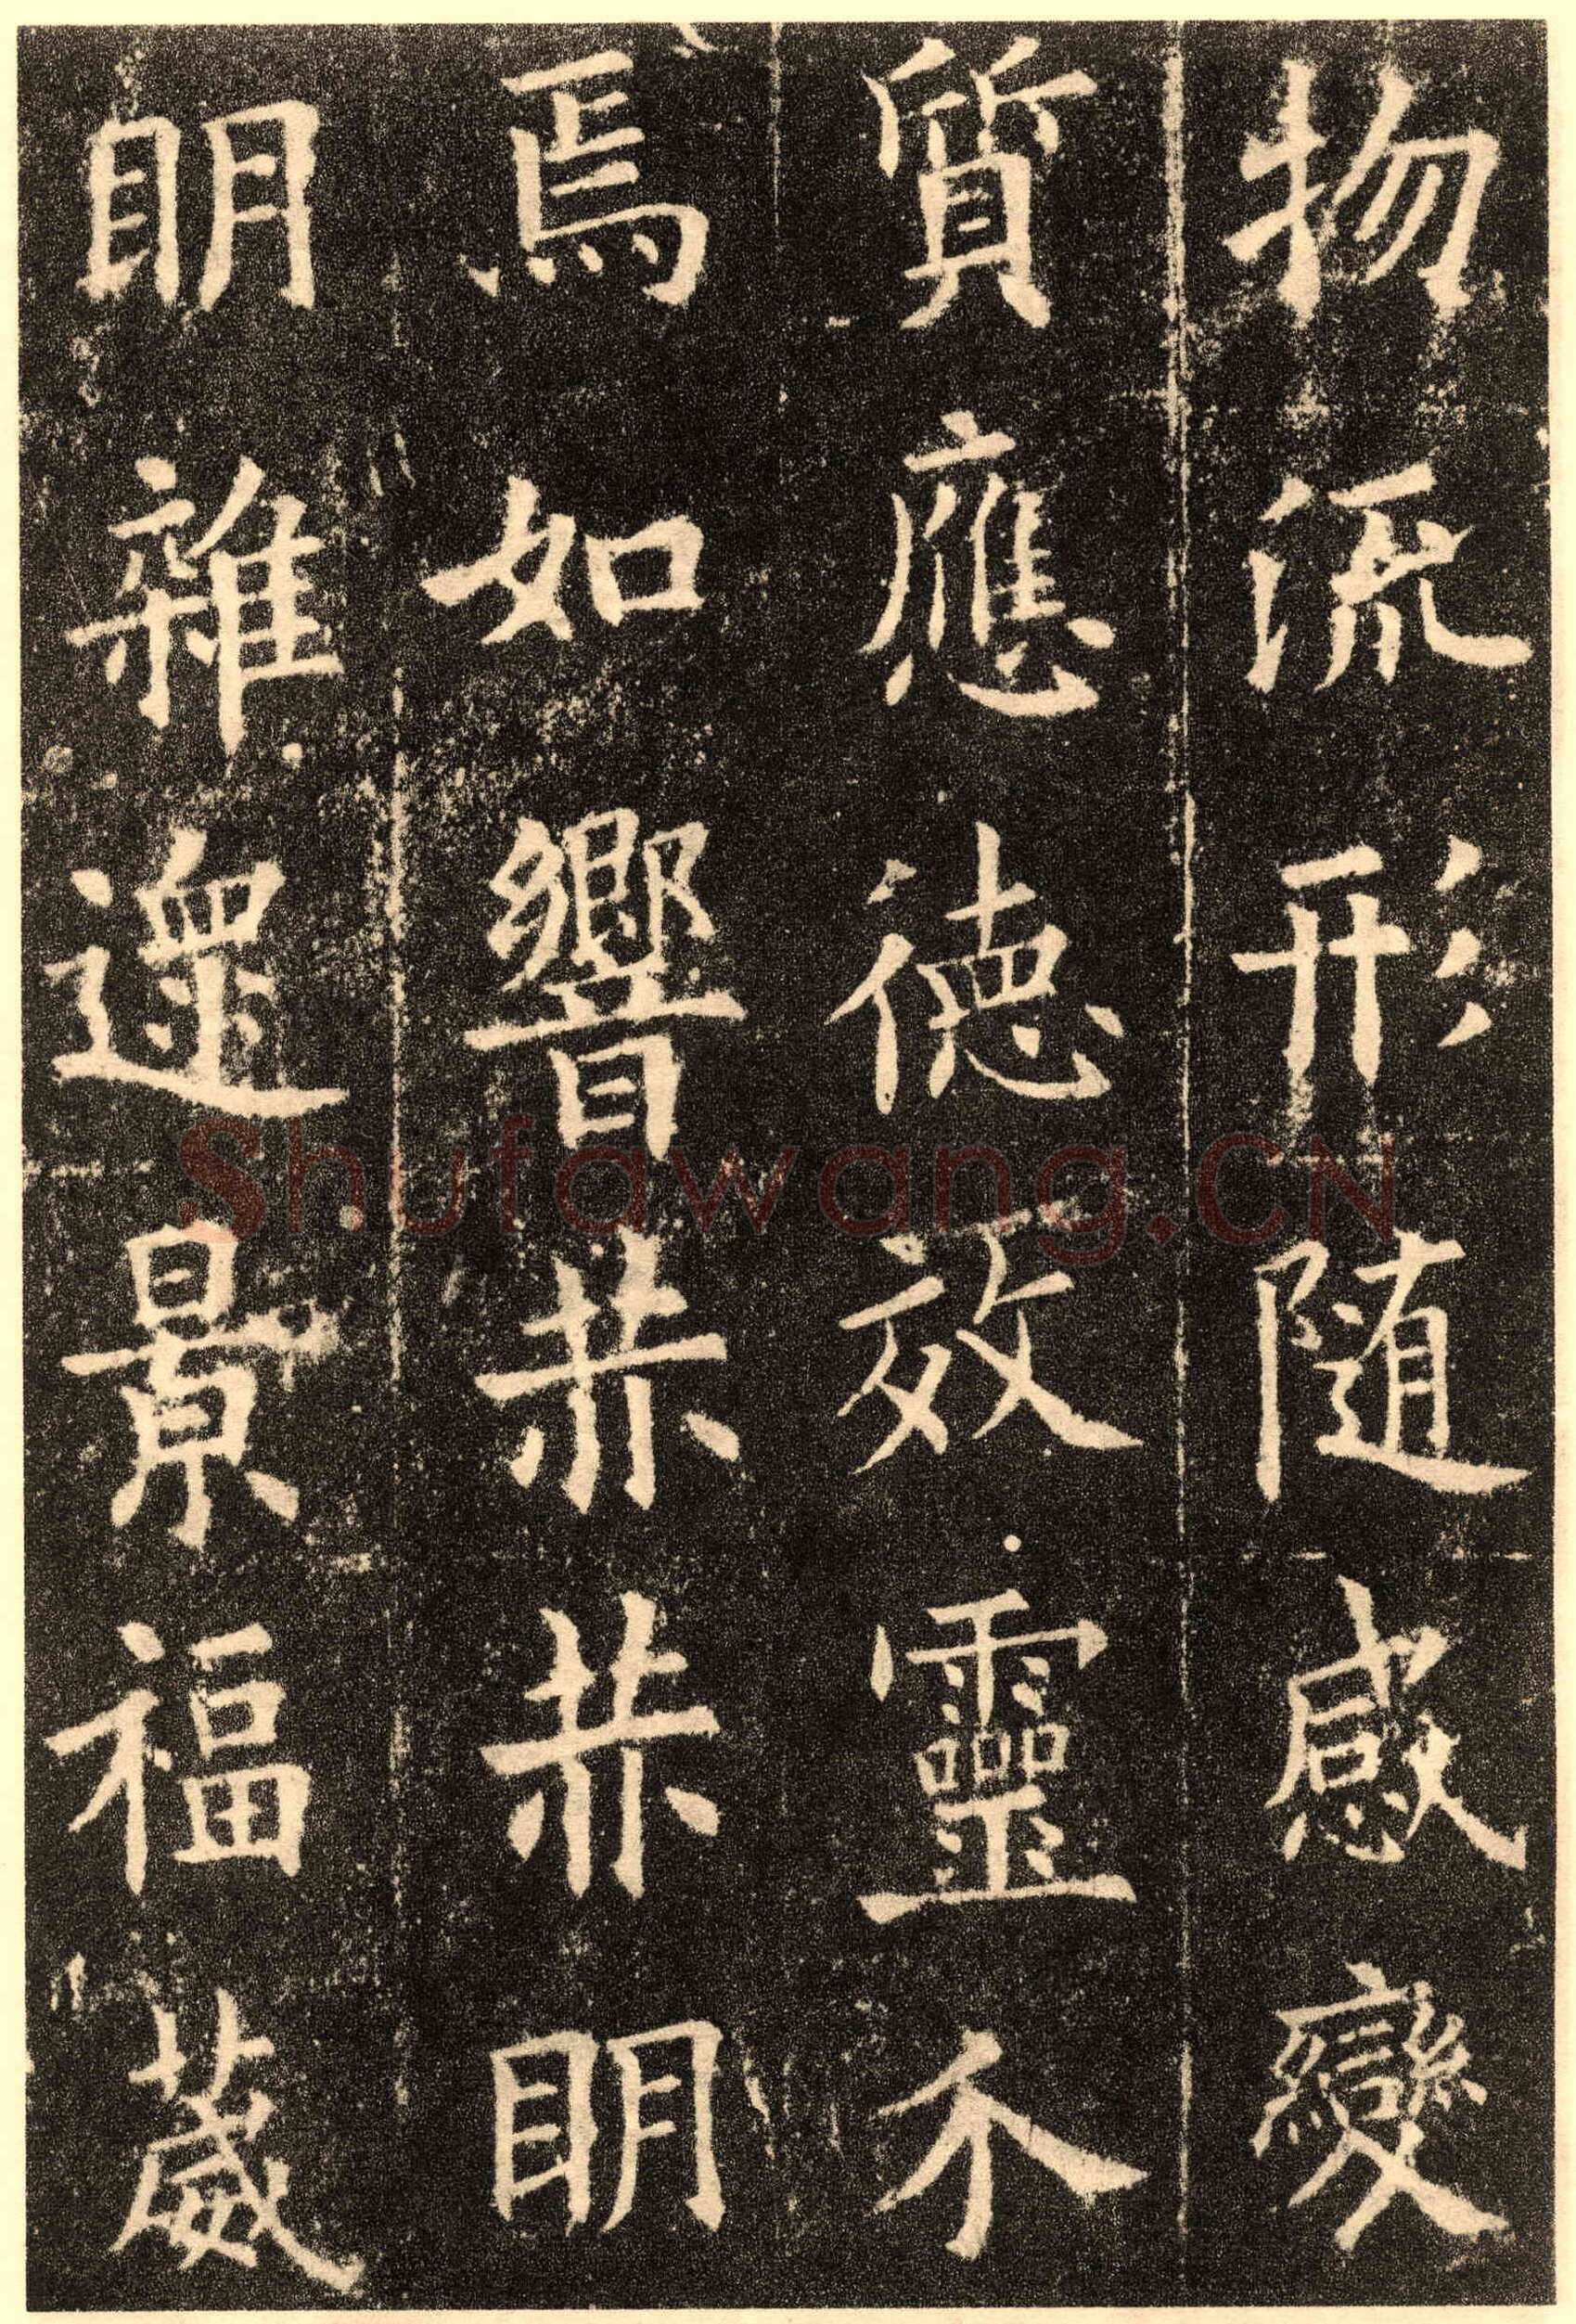 物流形随感變
質應德效靈不
焉如響赫赫明
明雜遝景福葳
Shufawang.CN